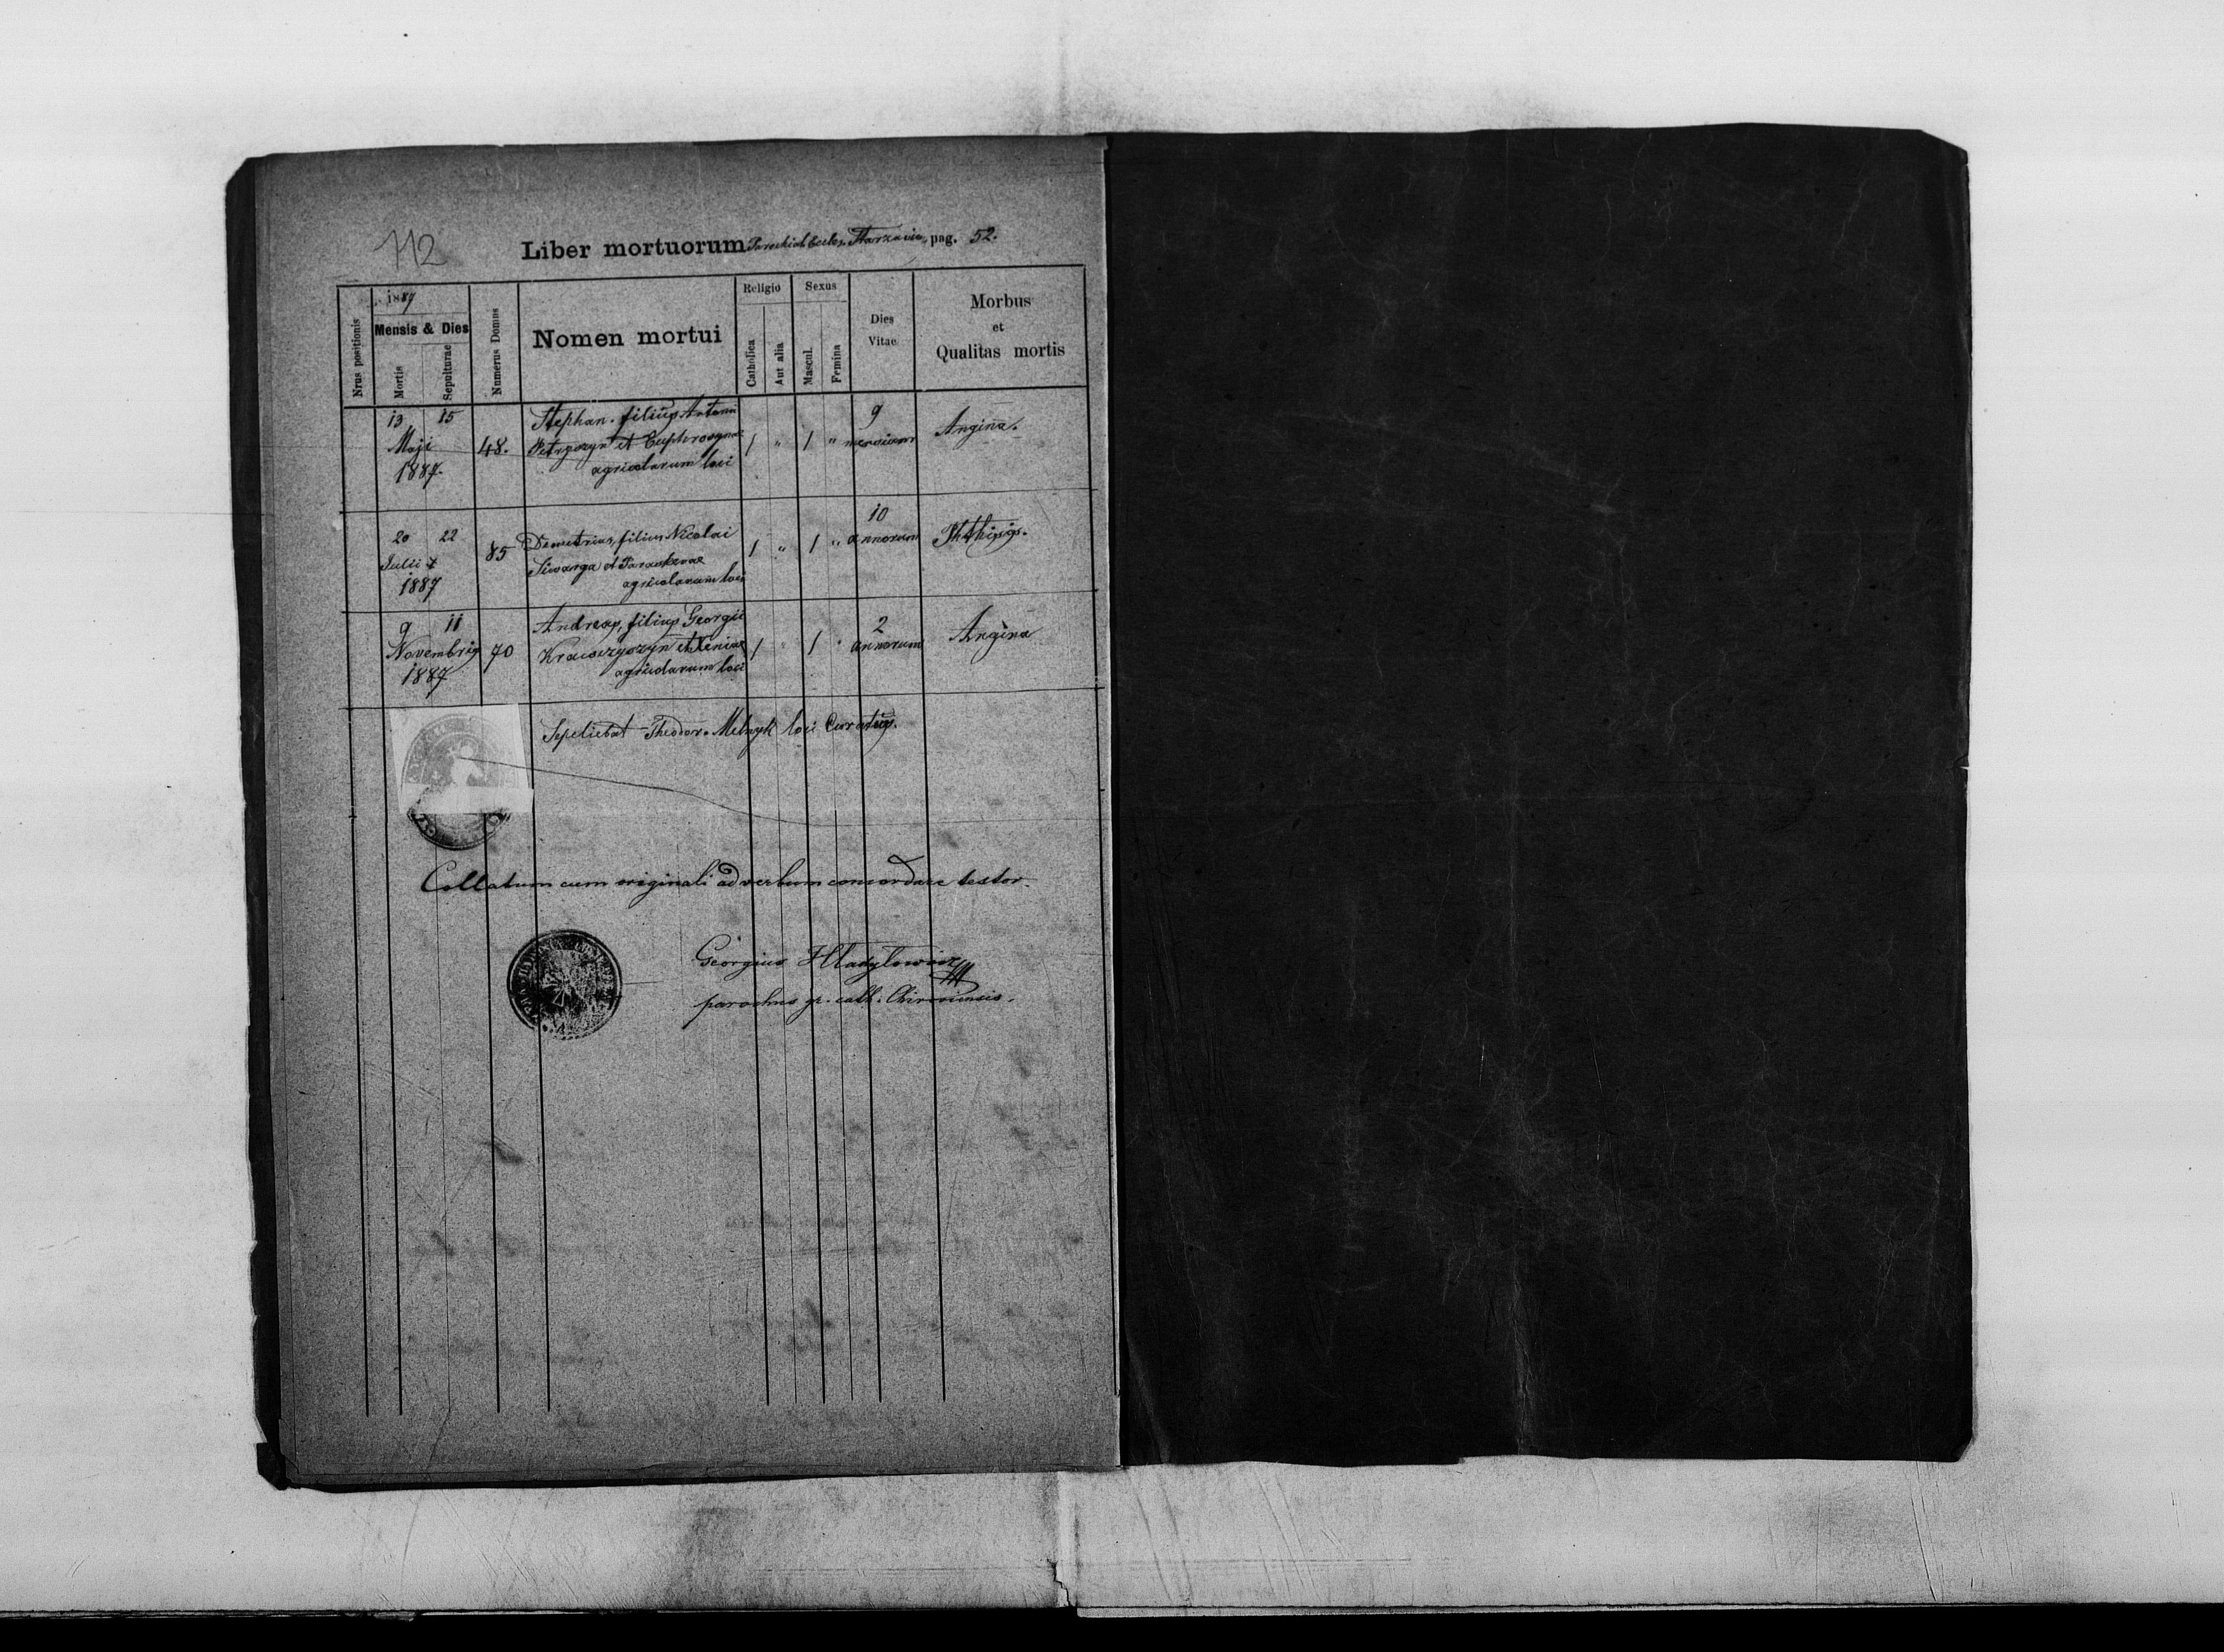 112
Liber mortuorum Parochial. Eccles. Starzawie, pag. 52.
1887
Nrus positionis
Mensis & Dies
Mortis
Sepulturae
Numerus Domus
Nomen mortui
Religio
Catholica
Aut alia
Sexus
Mascul.
Femina
Dies
Vitae
Morbus
et
Qualitas mortis
13 15
Maji
1887.
48.
Stephan. filius Antonii
Petryszyn et Euphrosynae
agricolarum loci
1 " 1 "
9
mensium
Angina.
20 22
Julii
1887
85
Demetrius, filius Nicolai
Siwarga et Parascevae
agricolarum loci
1 " 1 "
10
annorum
Phthisis.
9 11
Novembris
1887
70
Andreas, filius Georgii
et Xeniae
agricolarum loci
1 " 1 "
2
annorum
Angina
Sepeliebat Theodor. Melnyk loci Curatus.
Collatum cum originali ad verbum concordare testor.
Georgius Hladylowicz
parochus gr. cath. Chiroviensis.